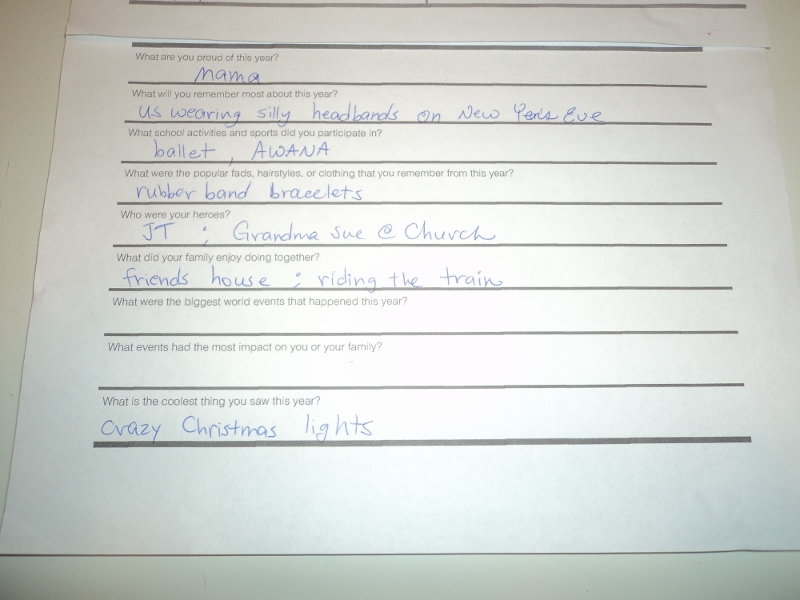 What are you proud of this year?
Mama
What will you remember most about this year?
Us wearing silly headbands on New Yers Eve
What school activities and sports did you participate in?
ballet, AWANA
What were the popular fads, hairstyles, or clothing that you remember from this year?
rubber band bracelets
Who were your heroes?
JT ; Grandma Sue @ Church
What did your family enjoy doing together?
friends house ; riding the train
What were the biggest world events that happened this year?
What events had the most impact on you or your family?
What is the coolest thing you saw this year?
crazy Christmas lights